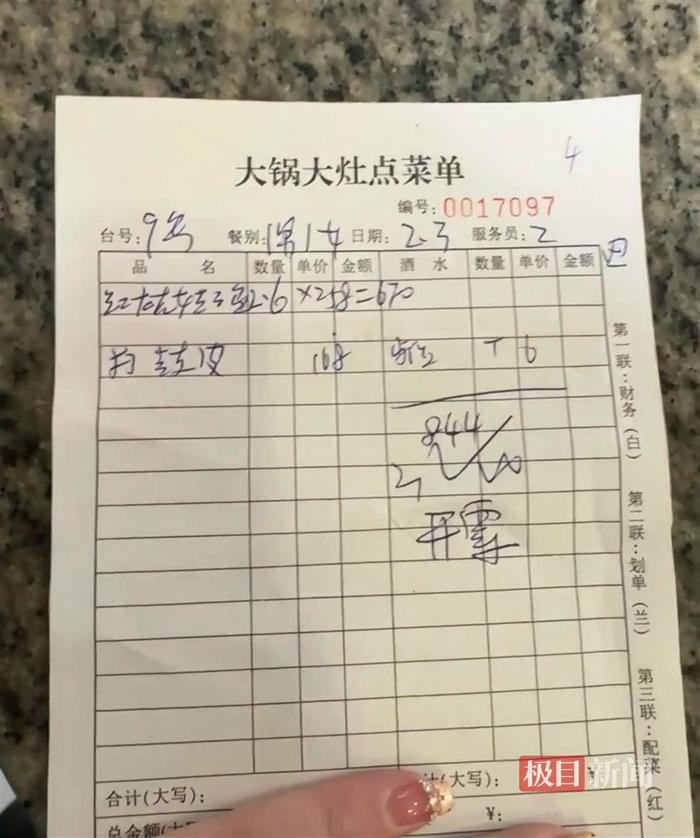 4
大锅大灶点菜单
编号: 0017097
台号: 9号 餐别: 日期: 2.3 服务员: 2
品 名 数量 单价 金额 酒 水 数量 单价 金额
2.6 ×258=670
皮 168 6
844
开票
第一联:财务(白)
第二联:划单(兰)
第三联:配菜(红)
合计(大写): 计(大写): ¥
总金额(大 ¥:
极目新闻